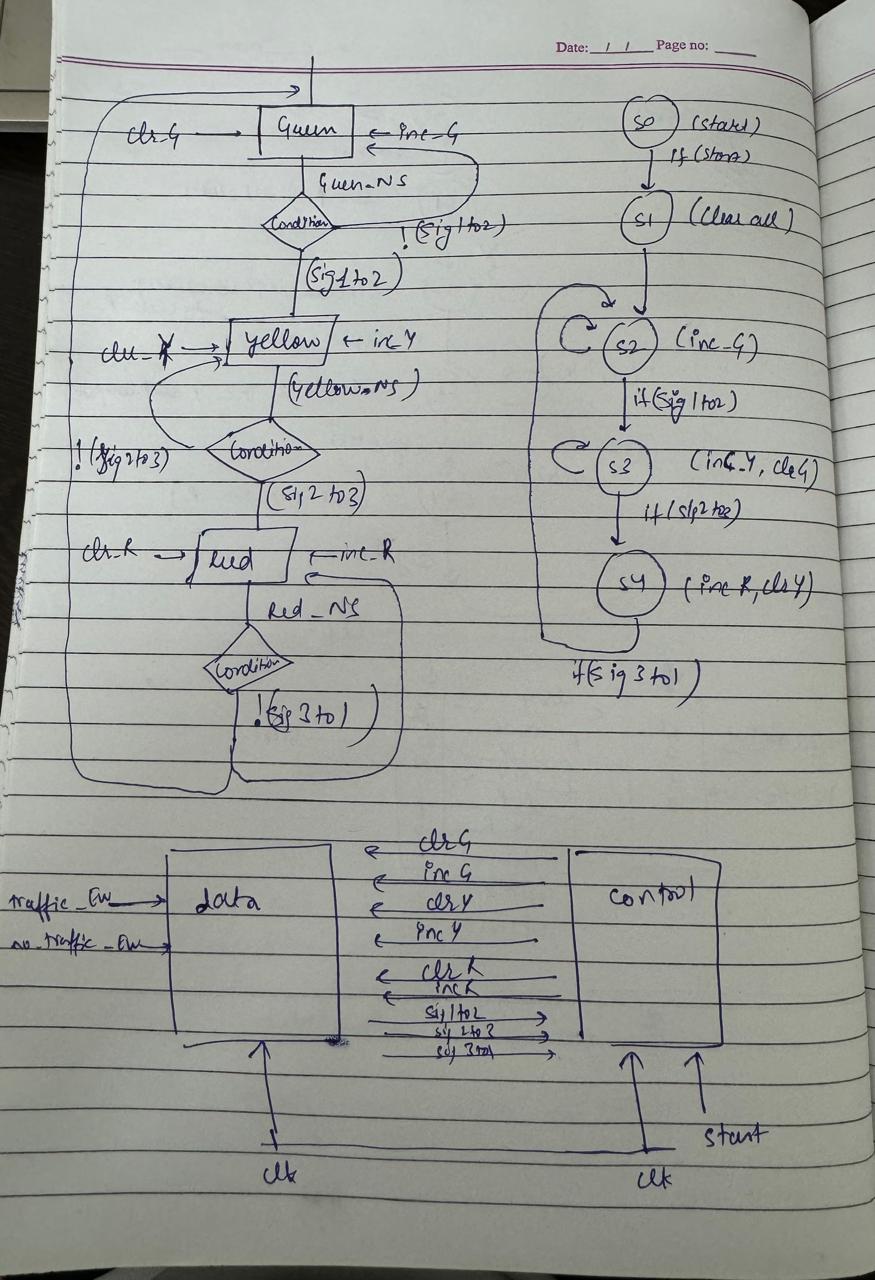 Date: / / Page no:
clr_G
Green
inc_G
Green_NS
Condition
!(sig1to2)
(sig1to2)
yellow
inc Y
(yellow_NS)
Condition
!(sig2to3)
(sig2to3)
clr_R
Red
inc_R
Red_NS
Condition
!(sig3to1)
S0 (start)
if (start)
S1 (clear all)
S2 (inc_G)
if (sig1to2)
S3 (inc_Y, clrG)
if (sig2to3)
S4 (inc R, clrY)
if (sig3to1)
traffic_EW
no_traffic_EW
data
clrG
incG
clrY
incY
clrR
incR
sig1to2
sig2to3
sig3to1
control
clk
clk
start